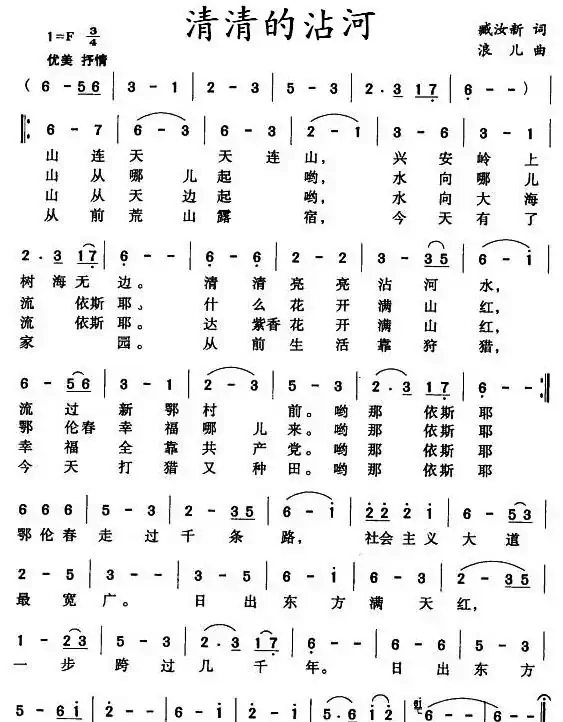 清清的沾河
1=F 3/4
优美 抒情
臧汝新 词
浪 儿 曲
( 6 - 56 | 3 - 1 | 2 - 3 | 5 - 3 | 2 · 3 17 | 6 - - )
6 - 7 | 6 - 3 | 6 - 3 | 2 - 1 | 3 - 6 | 3 - 1 |
山 连 天 天 连 山, 兴 安 岭 上
山 从 哪 儿 起 哟, 水 向 哪 儿
山 从 天 边 起 哟, 水 向 大 海
从 前 荒 山 露 宿, 今 天 有 了
2 · 3 17 | 6 - - | 6 - 6 | 2 - 2 | 3 - 35 | 6 - i |
树 海 无 边。 清 清 亮 亮 沾 河 水,
流 依斯 耶、 什 么 花 开 满 山 红,
流 依斯 耶。 达 紫香 花 开 满 山 红,
家 园。 从 前 生 活 靠 狩 猎,
6 - 56 | 3 - 1 | 2 - 3 | 5 - 3 | 2 · 3 17 | 6 - - :|
流 过 新 鄂 村 前。 哟 那 依斯 耶
鄂 伦春 幸 福 哪 儿 来。 哟 那 依斯 耶
幸 福 全 靠 共 产 党。 哟 那 依斯 耶
今 天 打 猎 又 种 田。 哟 那 依斯 耶
6 6 6 | 5 - 3 | 2 - 35 | 6 - i | 22 2 i | 6 - 53 |
鄂 伦 春 走 过 千 条 路, 社会 主 义 大 道
2 - 5 | 3 - - | 3 - 5 | 6 - 6 | i - 2 | 2 - 35 |
最 宽 广。 日 出 东 方 满 天 红,
1 - 23 | 5 - 3 | 2 · 3 17 | 6 - - | 6 - 6 | 5 - 3 |
一 步 跨 过 几 千 年。 日 出 东 方
5 - 6i | 2 - - | 2 - 2 | i - 3 | 5 · 6 i2 | 6 - - | 6 - - ‖